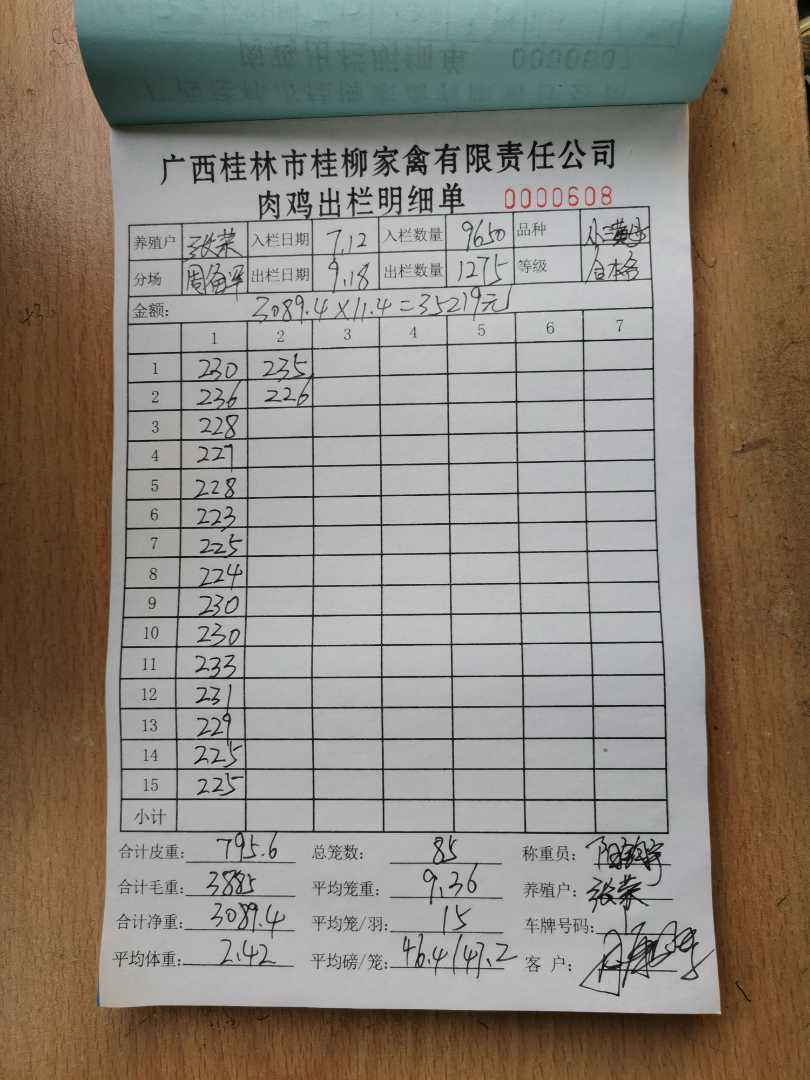 广西桂林市桂柳家禽有限责任公司
肉鸡出栏明细单 0000608
养殖户 张荣 入栏日期 7.12 入栏数量 9650 品种
分场 出栏日期 9.18 出栏数量 1275 等级 合格
金额: 3089.4×11.4=35219元
1 2 3 4 5 6 7
1 230 235
2 236 226
3 228
4 227
5 228
6 223
7 225
8 224
9 230
10 230
11 233
12 231
13 229
14 225
15 225
小计
合计皮重: 795.6 总笼数: 85 称重员:
合计毛重: 3885 平均笼重: 9.36 养殖户: 张荣
合计净重: 3089.4 平均笼/羽: 15 车牌号码:
平均体重: 2.42 平均磅/笼: 46.4/47.2 客户: